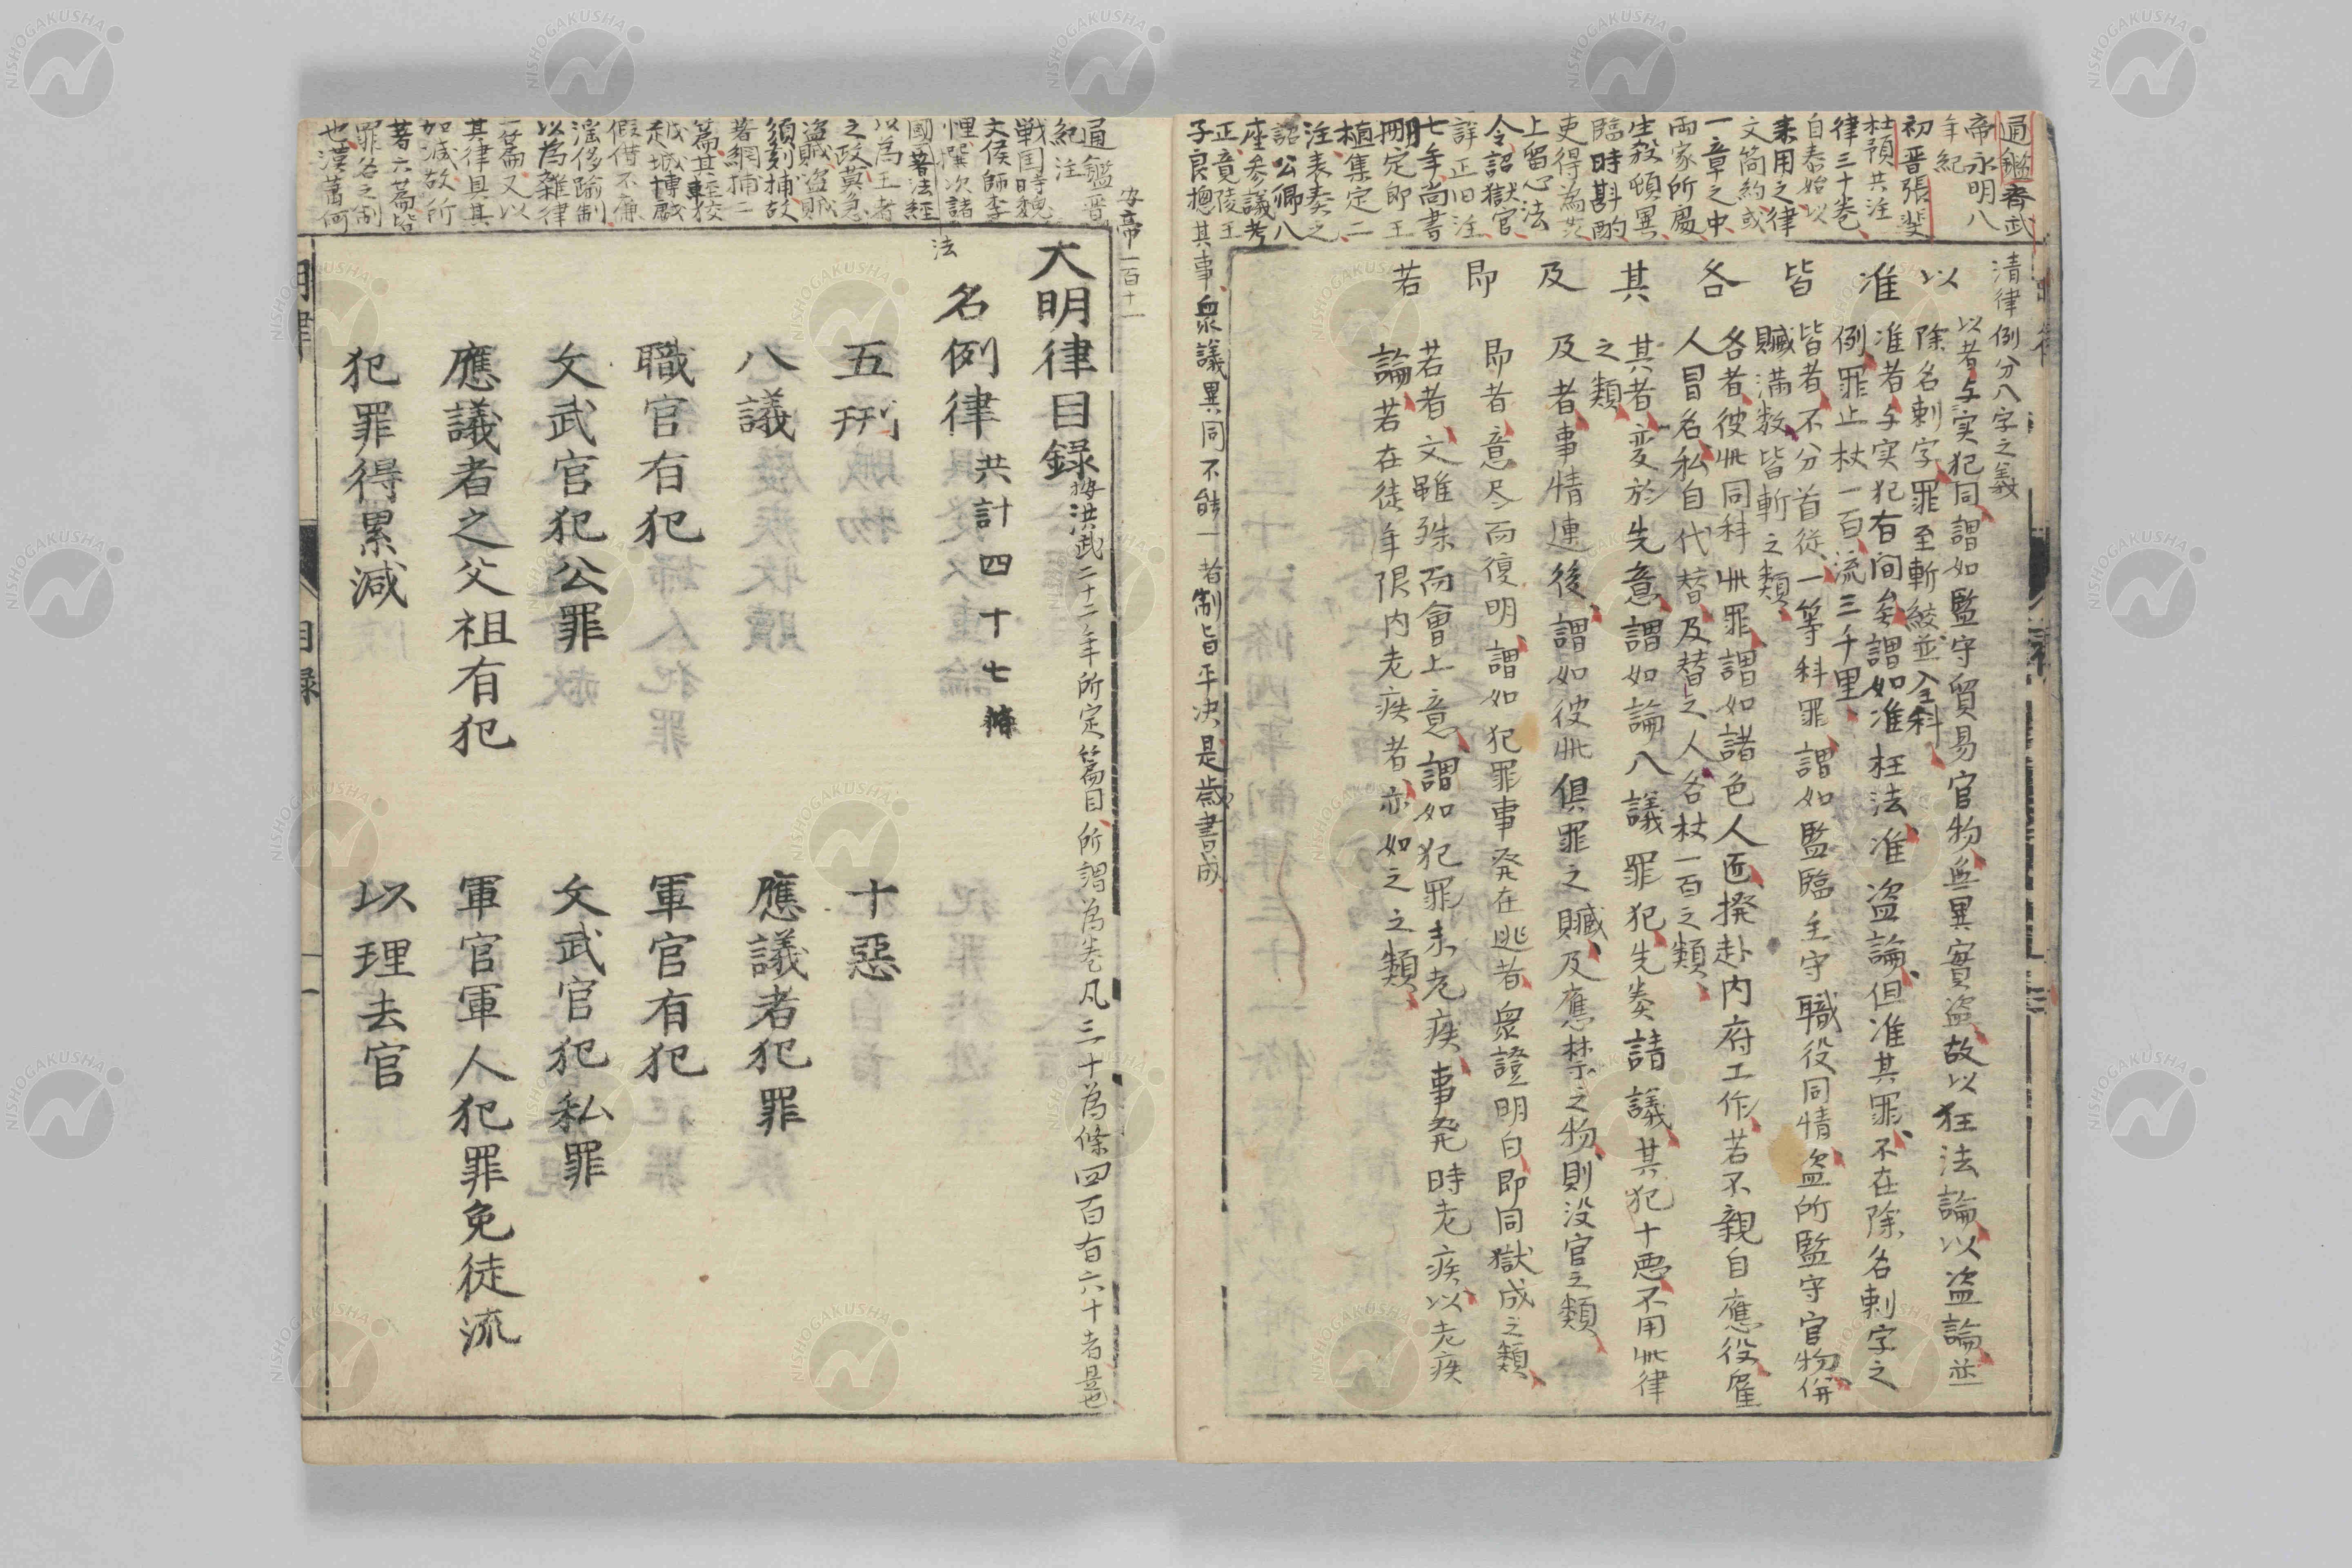 通鑑齊武
帝永明八
年紀
初晋張斐
杜預共注
律三十卷
自泰始以
来用之律
文簡約或
一章之中
両家所處
生殺頓異
臨時斟酌
吏得為姦
上留心法
令詔獄官
詳正旧注
七年尚書
刪定郎王
植集定二
注表奏之
詔公卿八
座参議考
正竟陵王
子良摠其事衆議異同不能一者制旨平決是歳書成
清律例分八字之義
以
以者与实犯同謂如監守貿易官物無異實盗故以枉法論以盗論並
除名刺字罪至斬絞並全科
准
准者与实犯有间矣謂如准枉法准盗論但准其罪不在除名刺字之
例罪止杖一百流三千里
皆
皆者不分首従一等科罪謂如監臨主守職役同情盗所監守官物併
贓満数皆斬之類
各
各者彼此同科此罪謂如諸色人匠撥赴内府工作若不親自應役雇
人冒名私自代替及替之人各杖一百之類
其
其者变於先意謂如論八議罪犯先奏請議其犯十悪不用此律
之類
及
及者事情連後謂如彼此俱罪之贓及應禁之物則没官之類
即
即者意尽而復明謂如犯罪事発在逃者衆證明白即同獄成之類
若
若者文雖殊而會上意謂如犯罪未老疾事発時老疾以老疾
論若在徒年限内老疾者亦如之之類
通鑑晋安帝一百十一
紀注
戦国時魏
文侯師李
悝撰次諸
國法著法経
以為王者
之政莫急
盗賊盗賊
須劾捕故
著網捕二
篇其軽狡
越城博戯
假借不廉
淫侈踰制
以為雑律
一篇又以
其律具其
加減故所
著六篇皆
罪名之制
也漢蕭何
大明律目録
按洪武二十二年所定篇目所謂為巻凡三十為條四百有六十者是也
名例律 共計四十七條
五刑 十惡
八議 應議者犯罪
職官有犯 軍官有犯
文武官犯公罪 文武官犯私罪
應議者之父祖有犯 軍官軍人犯罪免徒流
犯罪得累減 以理去官
明律 目録 一